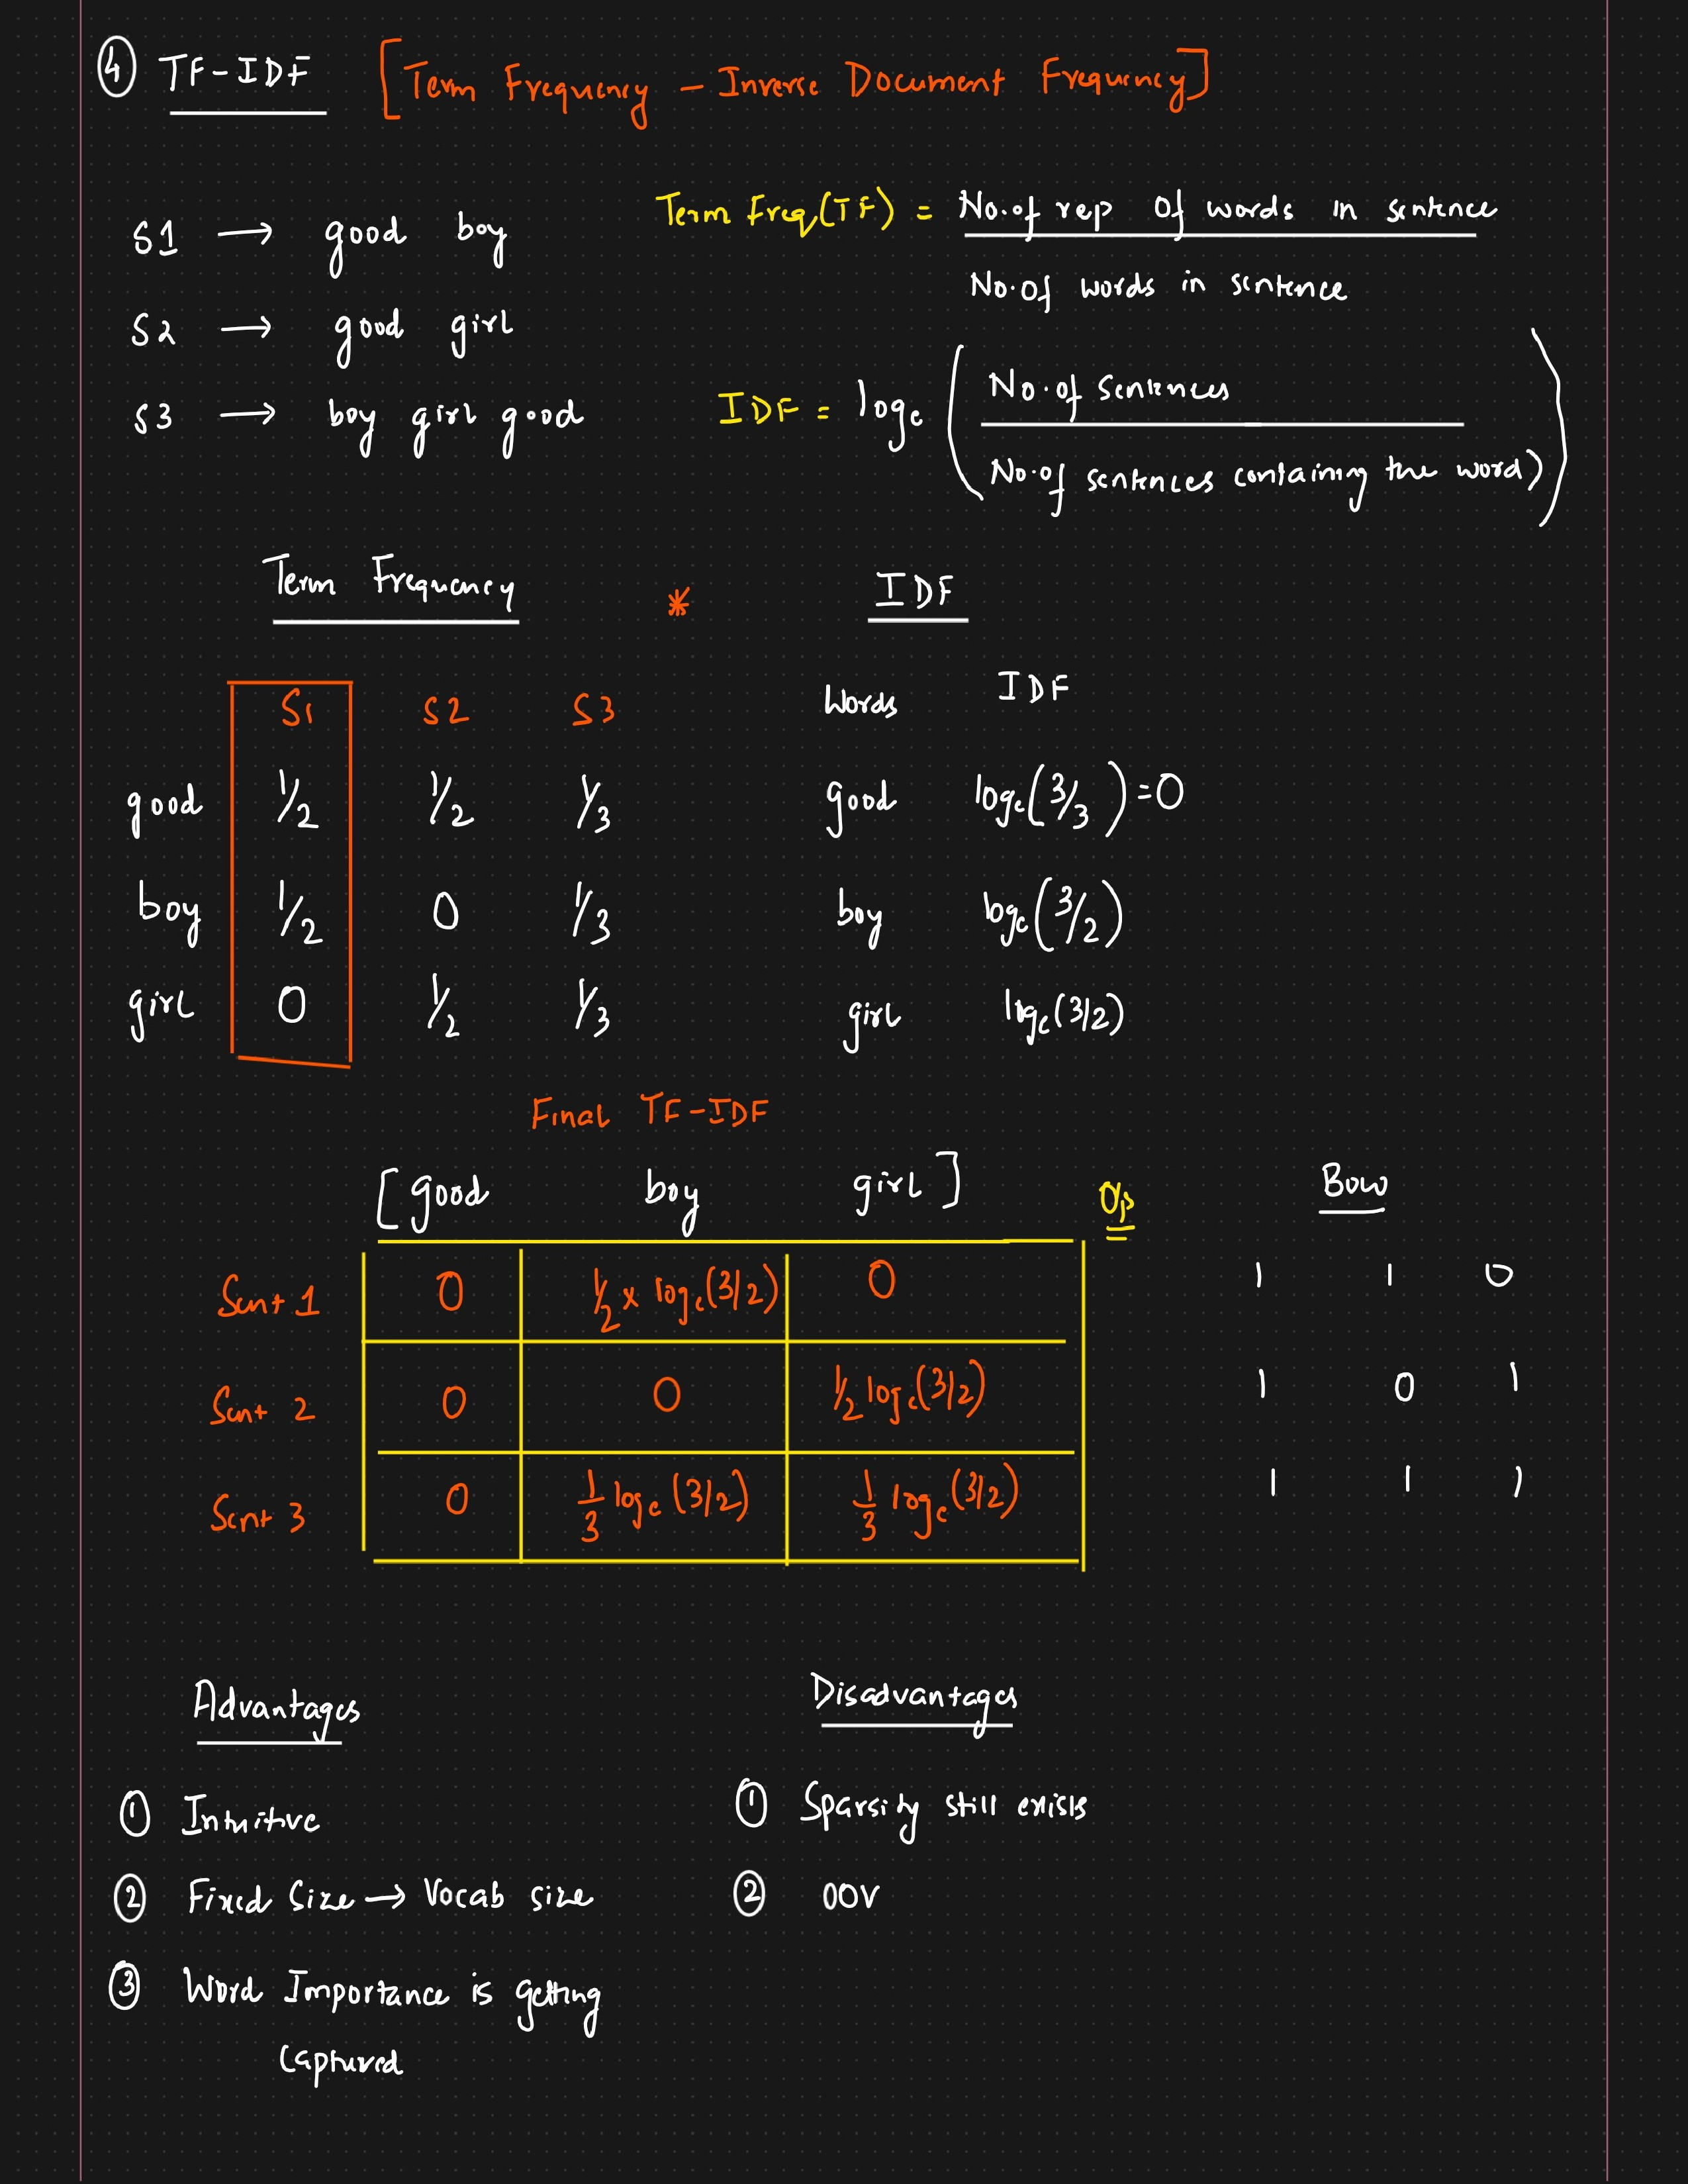 ④ TF-IDF [Term Frequency - Inverse Document Frequency]
S1 → good boy
S2 → good girl
S3 → boy girl good
Term Freq(TF) = No. of rep of words in sentence
No. of words in sentence
IDF = loge ( No. of Sentences
No. of sentences containing the word) )
Term Frequency * IDF
S1 S2 S3
good 1/2 1/2 1/3
boy 1/2 0 1/3
girl 0 1/2 1/3
Words IDF
good loge(3/3) = 0
boy loge(3/2)
girl loge(3/2)
Final TF-IDF
[good boy girl] O/p
Sent 1 0 1/2 x loge(3/2) 0
Sent 2 0 0 1/2 loge(3/2)
Sent 3 0 1/3 loge(3/2) 1/3 loge(3/2)
BOW
1 1 0
1 0 1
1 1 1
Advantages
① Intuitive
② Fixed Size → Vocab size
③ Word Importance is getting
Captured
Disadvantages
① Sparsity still exists
② OOV